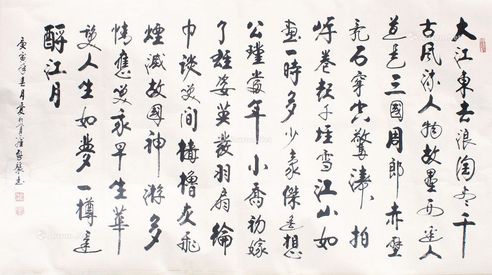 大江東去浪淘尽千
古風流人物故壘西邊人
道是三國周郎赤壁
亂石穿空驚濤拍
岸卷起千堆雪江山如
畫一時多少豪傑遙想
公瑾當年小喬初嫁
了雄姿英發羽扇綸
巾談笑間檣櫓灰飛
煙滅故國神游多
情應笑我早生華
髮人生如夢一樽還
酹江月
庚寅年春月